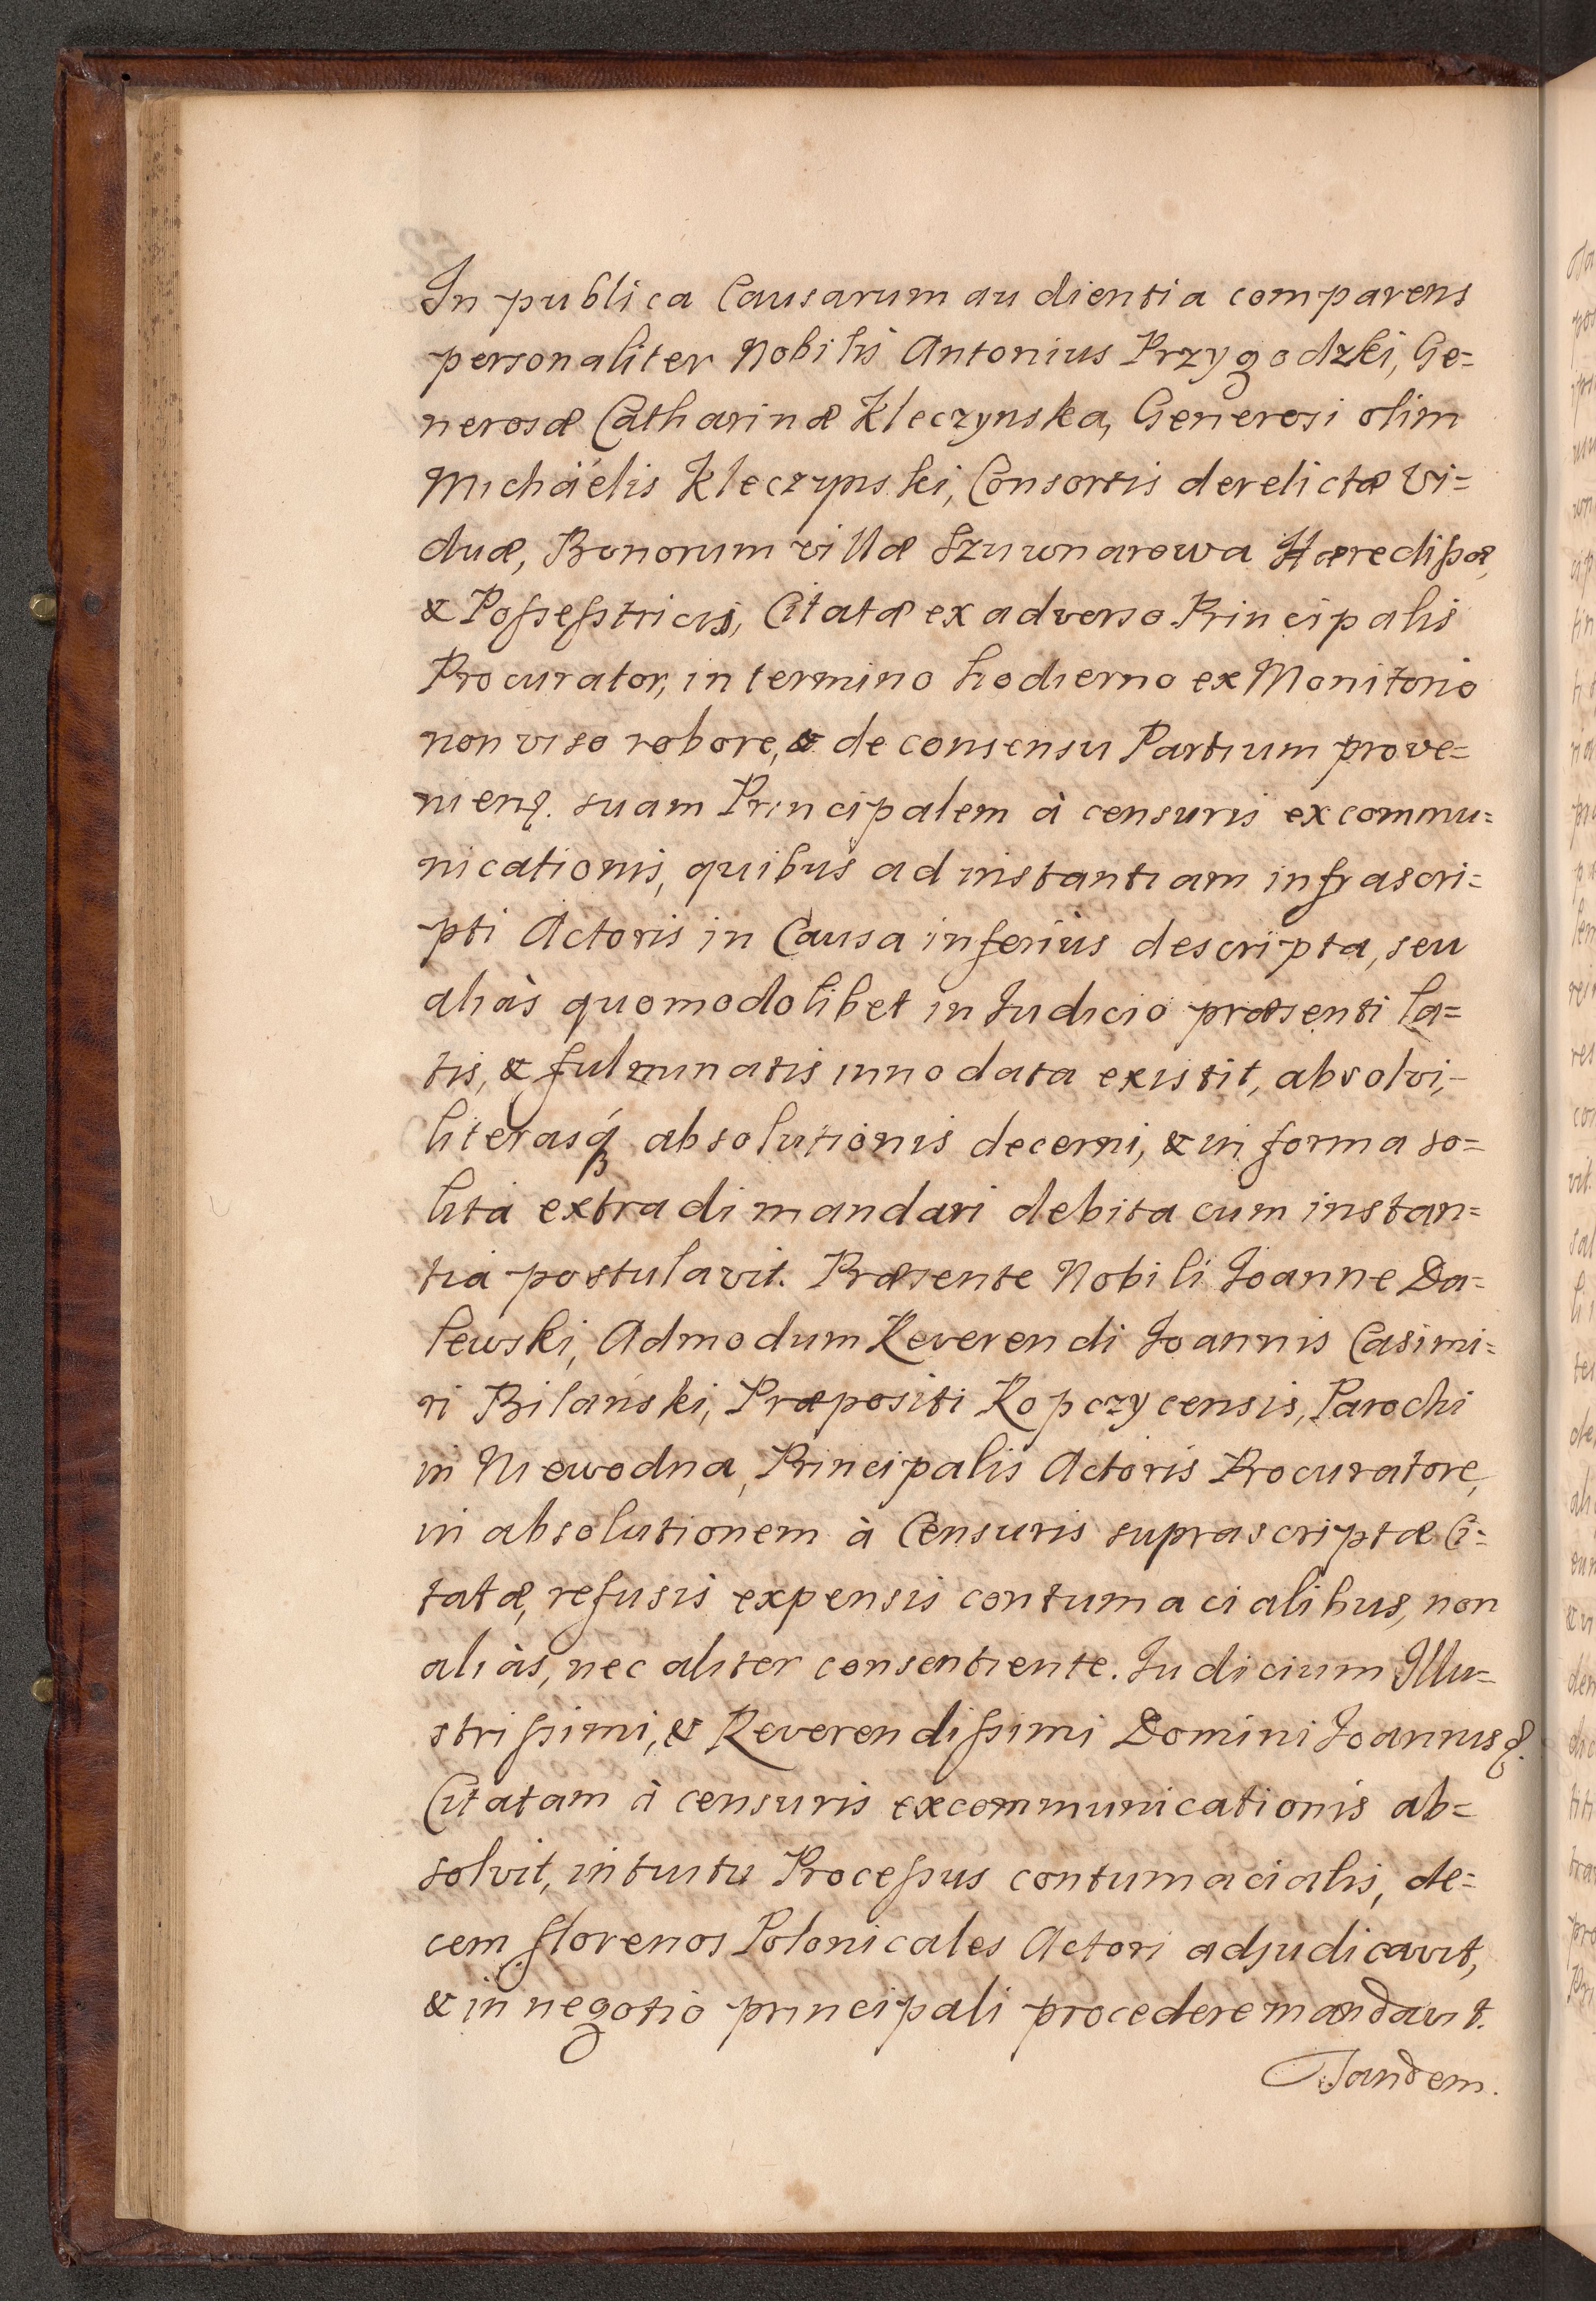 In publica Causarum audientia comparens
personaliter Nobilis Antonius Przygodzki, Ge=
nerosæ Catharinæ Kleczynska, Generosi olim
Michaëlis Kleczynski, Consortis derelictæ Vi=
duæ, Bonorum villæ Szuwnarowa Hæredissæ,
& Possesstricis, Citatæ ex adverso Principalis
Procurator, in termino hodierno ex Monitorio
non viso robore, & de consensu Partium prove=
nienꝗ. suam Principalem à censuris excommu=
nicationis, quibus ad instantiam infrascri=
pti Actoris in Causa inferius descripta, seu
aliàs quomodolibet in Iudicio præsenti la=
tis, & fulminatis innodata existit, absolvi,
literasq́ꝫ absolutionis decerni, & in forma so=
lita extradi mandari debita cum instan=
tia postulavit. Præsente Nobili Joanne Da=
lewski, Admodum Reverendi Joannis Casimi=
ri Bilański, Præpositi Ropczycensis, Parochi
in Niewodna, Principalis Actoris Procuratore,
in absolutionem à Censuris suprascriptæ Ci=
tatæ, refusis expensis contumacialibus, non
aliàs, nec aliter consentiente. Iudicium Illu=
strissimi, & Reverendissimi Domini Joannis ꝗ.
Citatam à censuris excommunicationis ab=
solvit, intuitu Processus contumacialis, de=
cem florenos Polonicales Actori adjudicavit,
& in negotio principali procedere mandavit.
Tandem.